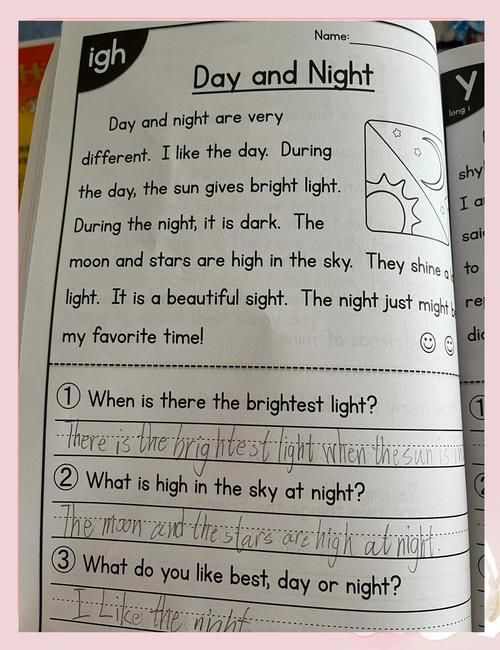 igh
Name:
Day and Night
Day and night are very
different. I like the day. During
the day, the sun gives bright light.
During the night, it is dark. The
moon and stars are high in the sky. They shine a
light. It is a beautiful sight. The night just might b
my favorite time!
① When is there the brightest light?
There is the brightest light when the sun is in
② What is high in the sky at night?
The moon and the stars are high at night.
③ What do you like best, day or night?
I Like the night
y
long i
shy
I a
said
to
re
did